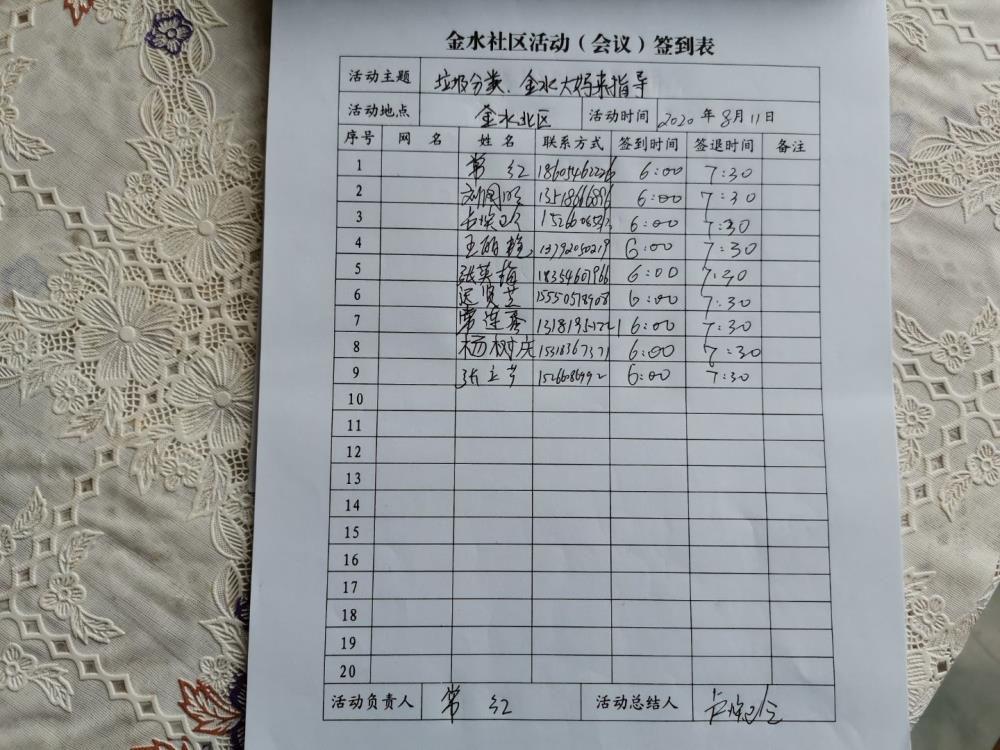 金水社区活动（会议）签到表
活动主题 垃圾分类、金水大妈来指导
活动地点 金水北区 活动时间 2020年8月11日
序号 网名 姓名 联系方式 签到时间 签退时间 备注
1 常红 18605462226 6:00 7:30
2 6:00 7:30
3 6:00 7:30
4 王丽艳 13792050219 6:00 7:30
5 张英梅 18354601966 6:00 7:30
6 15550578908 6:00 7:30
7 常连香 6:00 7:30
8 杨树庆 15318367371 6:00 7:30
9 6:00 7:30
10
11
12
13
14
15
16
17
18
19
20
活动负责人 常红 活动总结人